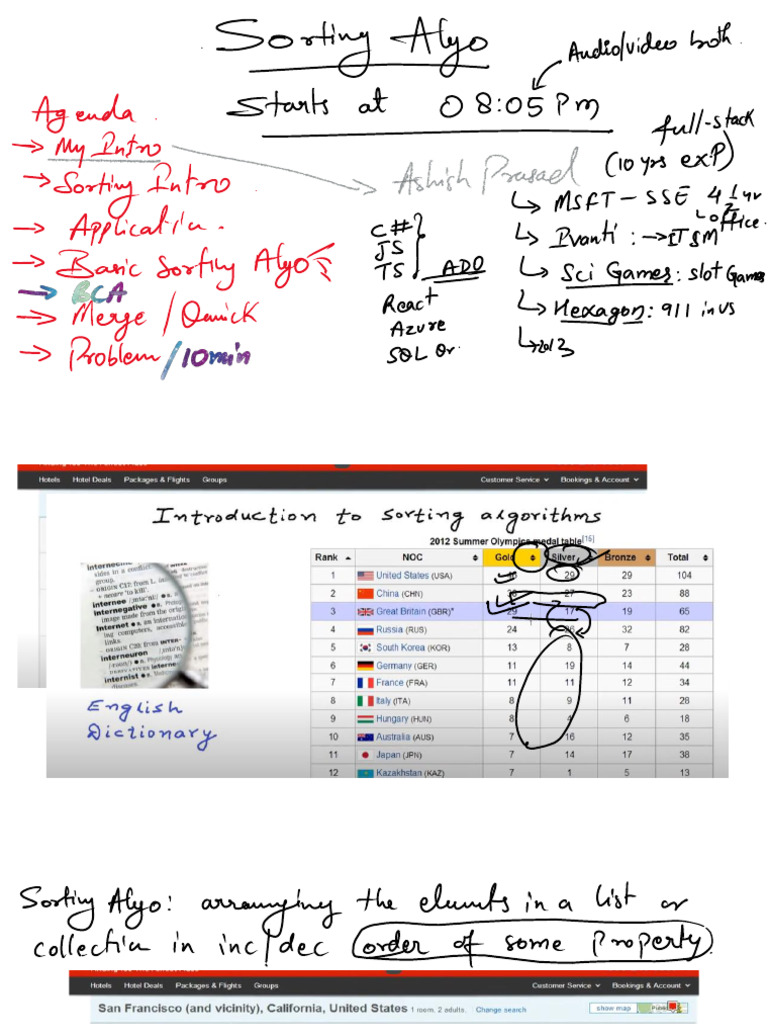 Sorting Algo
Audio/video both
Starts at 08:05 Pm
Agenda
→ My Intro
→ Sorting Intro
→ Application.
→ Basic Sorting Algo
→ BCA
→ Merge / Quick
→ Problem / 10 min
full-stack
(10 yrs exp)
Ashish Prasad
MSFT - SSE 4 1 yr
office.
Ivanti : → ITSM
Sci Games: slot Games
Hexagon: 911 in us
2013
C#
JS
TS
ADO
React
Azure
SQL Or.
Hotels Hotel Deals Packages & Flights Groups Customer Service Bookings & Account
Introduction to sorting algorithms
2012 Summer Olympics medal table[15]
Rank NOC Gold Silver Bronze Total
1 United States (USA) 29 29 104
2 China (CHN) 27 23 88
3 Great Britain (GBR)* 29 17 19 65
4 Russia (RUS) 24 26 32 82
5 South Korea (KOR) 13 8 7 28
6 Germany (GER) 11 19 14 44
7 France (FRA) 11 11 12 34
8 Italy (ITA) 8 9 11 28
9 Hungary (HUN) 8 4 6 18
10 Australia (AUS) 7 16 12 35
11 Japan (JPN) 7 14 17 38
12 Kazakhstan (KAZ) 7 1 5 13
internee
internegative
Internet
interneuron
internist
English
Dictionary
Sorting Algo: arranging the elements in a list or
collection in inc/dec order of some property.
Hotels Hotel Deals Packages & Flights Groups Customer Service Bookings & Account
San Francisco (and vicinity), California, United States 1 room, 2 adults. Change search show map